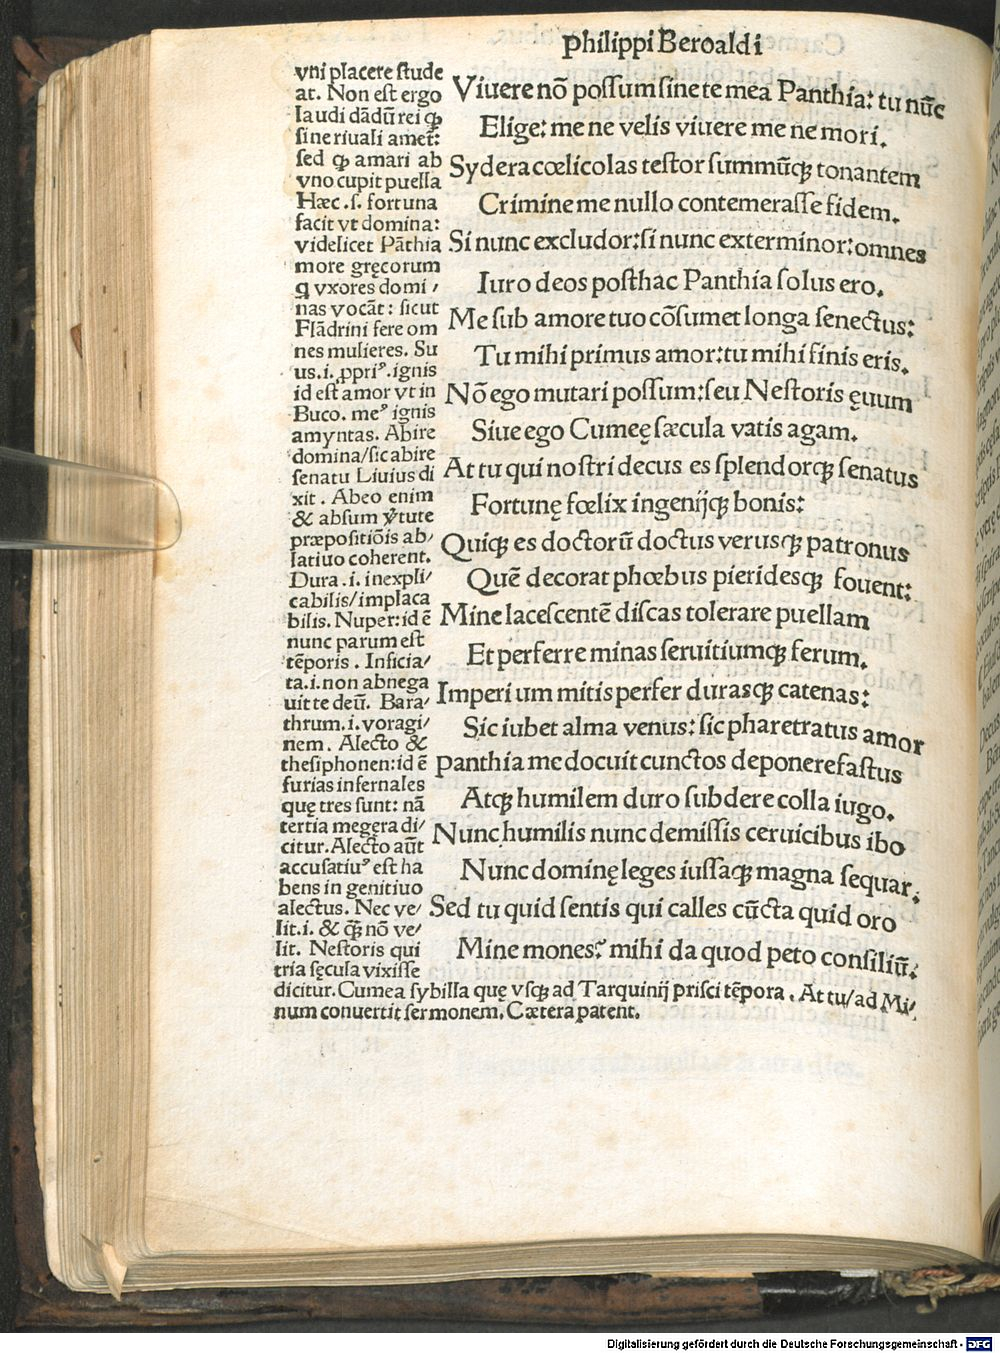 philippi Beroaldi
vni placere ſtude
at. Non eſt ergo
laudi dādū rei qͥ
ſine riuali amet:
ſed ꝙ amari ab
vno cupit puella
Hæc .ſ. fortuna
facit vt domina:
videlicet Pāthia
more gręcorum
q vxores domi /
nas vocāt : ſicut
Flādrini fere om
nes mulieres. Su
us.i. ꝓpriꝰ .ignis
id eſt amor vt in
Buco. meꝰ ignis
amyntas. Abire
domina/ſic abire
ſenatu Liuius di
xit . Abeo enim
& abſum v̓tute
præpoſitiōis ab/
latiuo coherent.
Dura .i. inexpli/
cabilis/implaca
bilis. Nuper:id ē
nunc parum eſt
tēporis . Inficia/
ta.i.non abnega
uit te deū. Bara/
thrum.i.voragi/
nem . Alecto &
theſiphonen:id ē
furias infernales
quę tres ſunt: nā
tertia megera di/
citur.Alecto aūt
accuſatiuꝰ eſt ha
bens in genitiuo
alectus. Nec ve/
lit.i. & q̄ nō ve/
lit. Neſtoris qui
tria ſęcula vixiſſe
dicitur.Cumea ſybilla quę vſqꝫ ad Tarquinij priſci tēpora . At tu/ad Mi/
num conuertit ſermonem. Cætera patent.
Viuere nō poſſum ſine te mea Panthia: tu nūc
Elige: me ne velis viuere me ne mori.
Sydera cœlicolas teſtor ſummūqꝫ tonantem
Crimine me nullo contemeraſſe fidem.
Si nunc excludor:ſi nunc exterminor:omnes
Iuro deos poſthac Panthia ſolus ero.
Me ſub amore tuo cōſumet longa ſenectus:
Tu mihi primus amor:tu mihi finis eris.
Nō ego mutari poſſum:ſeu Neſtoris ęuum
Siue ego Cumeę ſæcula vatis agam.
At tu qui noſtri decus es ſplendorqꝫ ſenatus
Fortunę fœlix ingenijqꝫ bonis:
Quiqꝫ es doctorū doctus verusqꝫ patronus
Quē decorat phœbus pieridesqꝫ fouent:
Mine laceſcentē diſcas tolerare puellam
Et perferre minas ſeruitiumqꝫ ferum.
Imperium mitis perfer durasqꝫ catenas:
Sic iubet alma venus: ſic pharetratus amor
panthia me docuit cunctos deponere faſtus
Atqꝫ humilem duro ſubdere colla iugo.
Nunc humilis nunc demiſſis ceruicibus ibo
Nunc dominę leges iuſſaqꝫ magna ſequar.
Sed tu quid ſentis qui calles cūcta quid oro
Mine mones? mihi da quod peto conſiliū.
Digitalisierung gefördert durch die Deutsche Forschungsgemeinschaft - DFG